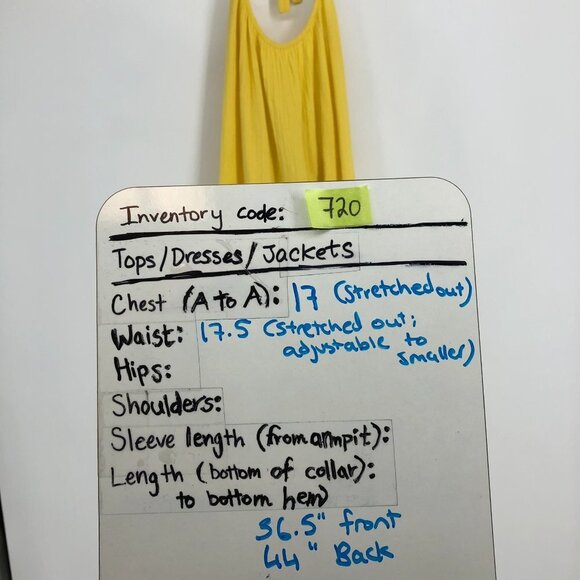 Inventory code: 720
Tops/Dresses/Jackets
Chest (A to A): 17 (stretched out)
Waist: 17.5 (stretched out;
adjustable to
smaller)
Hips:
Shoulders:
Sleeve length (from armpit):
Length (bottom of collar):
to bottom hem)
36.5" front
44" Back